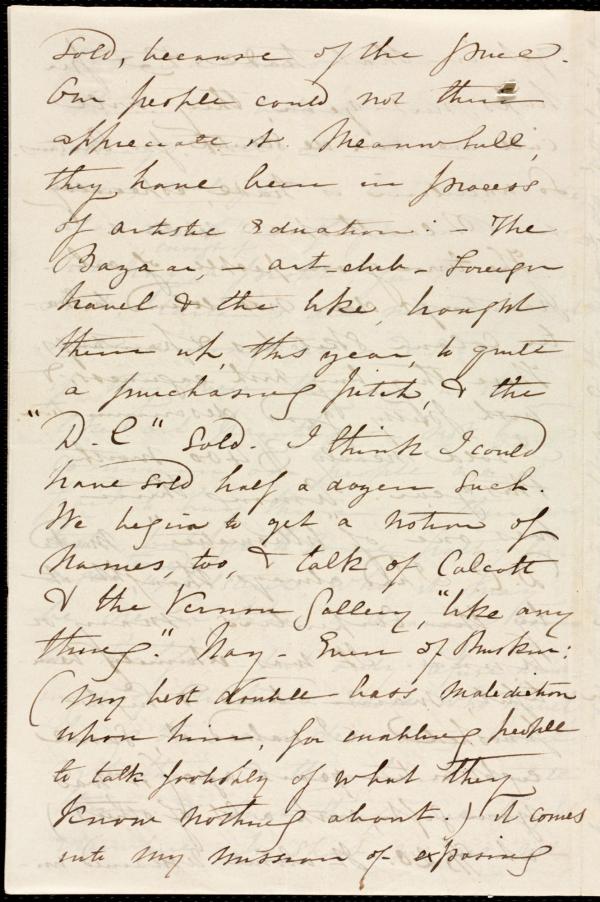 Sold, because of the price.
Our people could not then
appreciate it. Meanwhile,
they have been in process
of artistic Education: - The
Bazaar, - art-club - Foreign
travel & the like, bought
them up, this year, to quite
a purchasing pitch, & the
"D. C" sold. I think I could
have sold half a dozen such.
We begin to get a notion of
Names, too, & talk of Calcott
& the Vernon Gallery, "like any
thing." Nay - Even of Ruskin:
(My best double bass malediction
upon him, for enabling people
to talk foolishly of what they
know nothing about.) It comes
into my mission of exposing